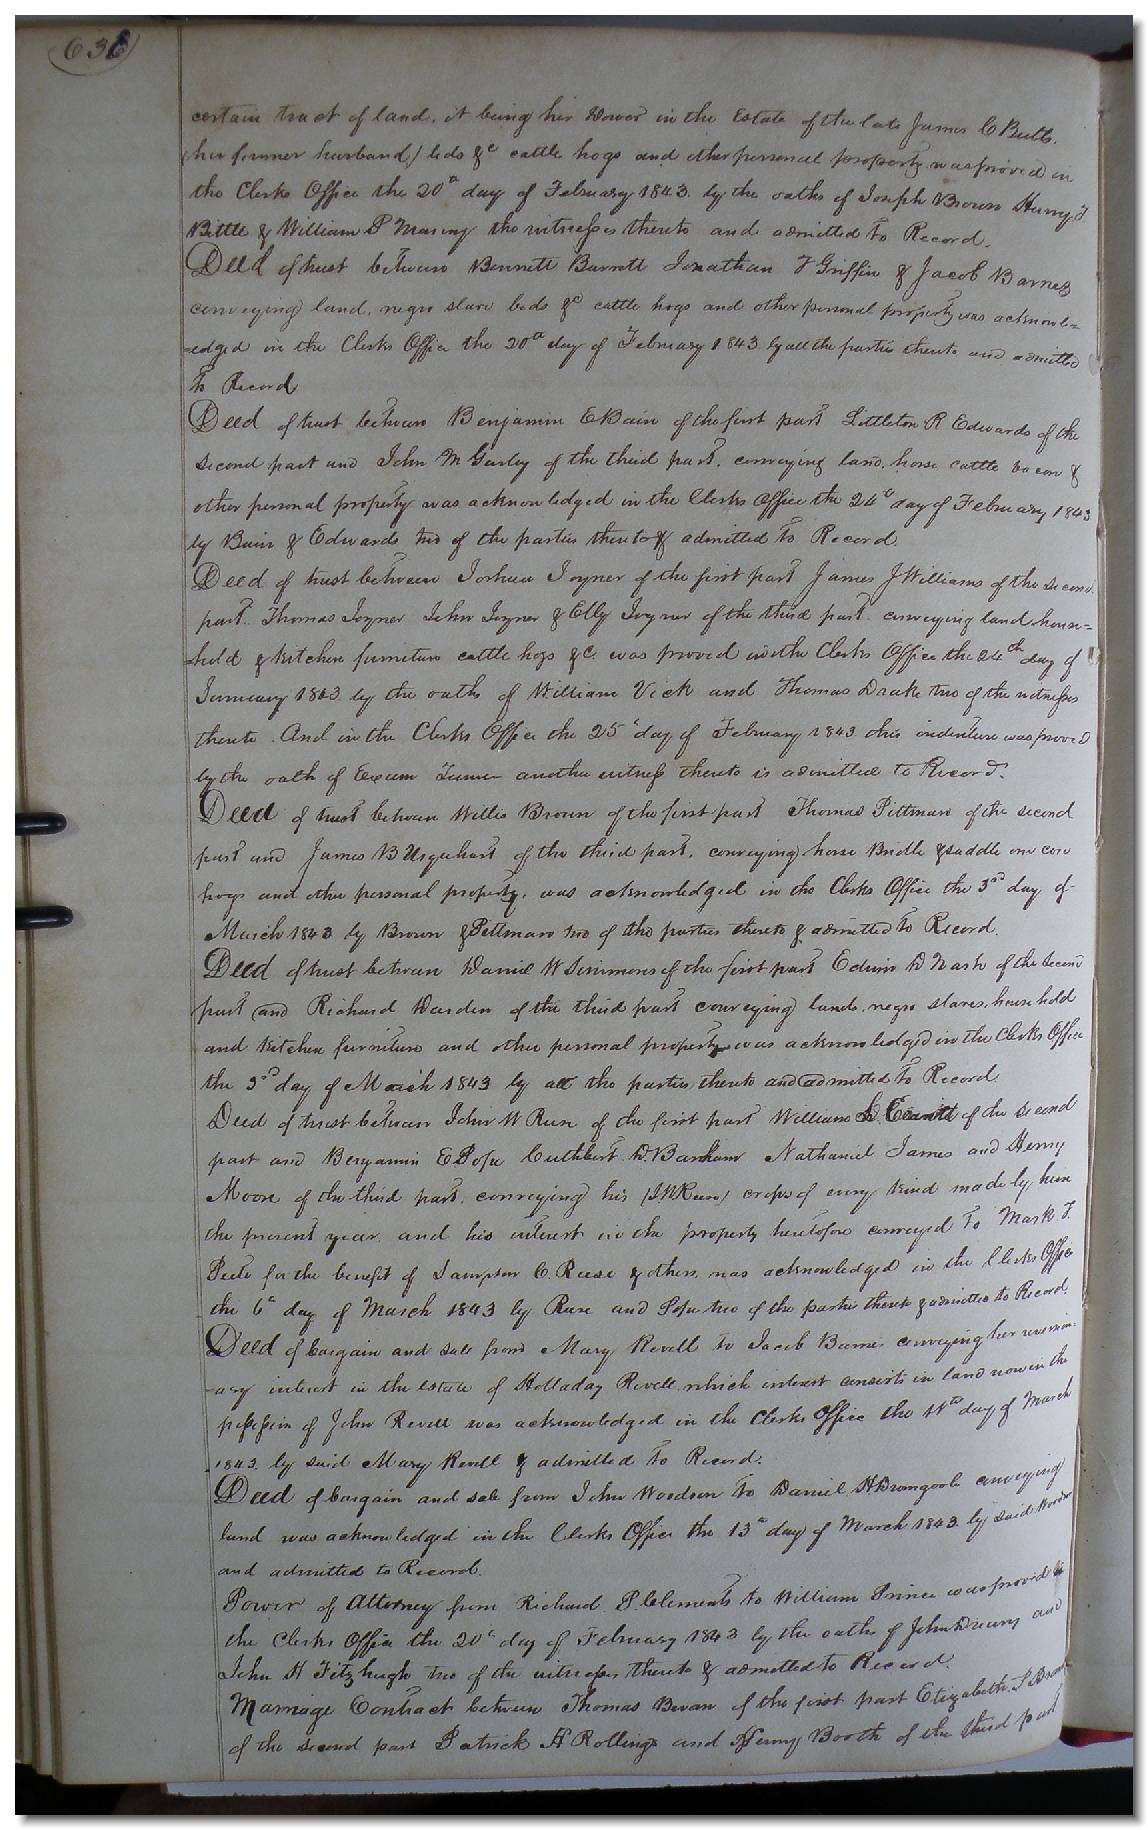 636
certain tract of land, it being her Dower in the Estate of the late James C Butts,
(her former husband) beds &c cattle hogs and other personal property was proved in
the Clerks Office the 20th day of February 1843 by the oaths of Joseph Brown Henry J
Bittle & William P the witnesses thereto and admitted to Record.
Deed of trust between Bennett Barrett Jonathan T Griffin & Jacob Barnes
conveying land, negro slave beds &c cattle hogs and other personal property was acknowl=
=edged in the Clerks Office the 20th day of February 1843 by all the parties thereto and admitted
to Record
Deed of trust between Benjamin E Bain of the first part Littleton R Edwards of the
second part and John M Gurley of the third part, conveying land, horse cattle bacon &
other personal property was acknowledged in the Clerks Office the 24th day of February 1843
by Bain & Edwards two of the parties thereto & admitted to Record.
Deed of trust between Joshua Joyner of the first part James J Williams of the second
part Thomas Joyner John Joyner & Elly Joyner of the third part conveying land house=
=hold & kitchen furniture cattle hogs &c. was proved in the Clerks Office the 24th day of
January 1843 by the oaths of William Vick and Thomas Drake two of the witnesses
thereto. And in the Clerks Office the 25th day of February 1843 this indenture was proved
by the oath of Exum Turner another witness thereto is admitted to Record.
Deed of trust between Willis Brown of the first part Thomas Pittman of the second
part and James B Urquhart of the third part, conveying horse Bridle & saddle one cow
hogs and other personal property, was acknowledged in the Clerks Office the 3rd day of
March 1843 by Brown & Pittman two of the parties thereto & admitted to Record.
Deed of trust between Daniel W Simmons of the first part Edwin D Nash of the second
part and Richard Darden of the third part conveying lands, negro slaves, household
and kitchen furniture and other personal property was acknowledged in the Clerks Office
the 3rd day of March 1843 by all the parties thereto and admitted to Record
Deed of trust between John W Reese of the first part William of the second
part and Benjamin E Pope Cuthbert D. Barham Nathaniel James and Henry
Moore of the third part, conveying his (J W Reese) crops of every kind made by him
the present year, and his interest in the property heretofore conveyed to Mark T.
Peete for the benefit of Sampson C. Reese & others, was acknowledged in the Clerks Office
the 6th day of March 1843 by Reese and Pope two of the parties thereto & admitted to Record.
Deed of bargain and sale from Mary Revell to Jacob Barnes conveying her reversion-
-ary interest in the estate of Holladay Revell which interest consists in land now in the
possession of John Revell was acknowledged in the Clerks Office the 11th day of March
1843. by said Mary Revell & admitted to Record.
Deed of bargain and sale from John Woodson to Daniel H Dromgoole conveying
land was acknowledged in the Clerks Office the 13th day of March 1843 by said Woodson
and admitted to Record.
Power of Attorney from Richard P. Clements to William Prince was proved in
the Clerks Office the 20th day of February 1843 by the oaths of John and
John H Fitzhugh two of the witnesses thereto & admitted to Record.
Marriage Contract between Thomas Bevan of the first part Elizabeth S
of the second part Patrick H Rollings and Henry Booth of the third part